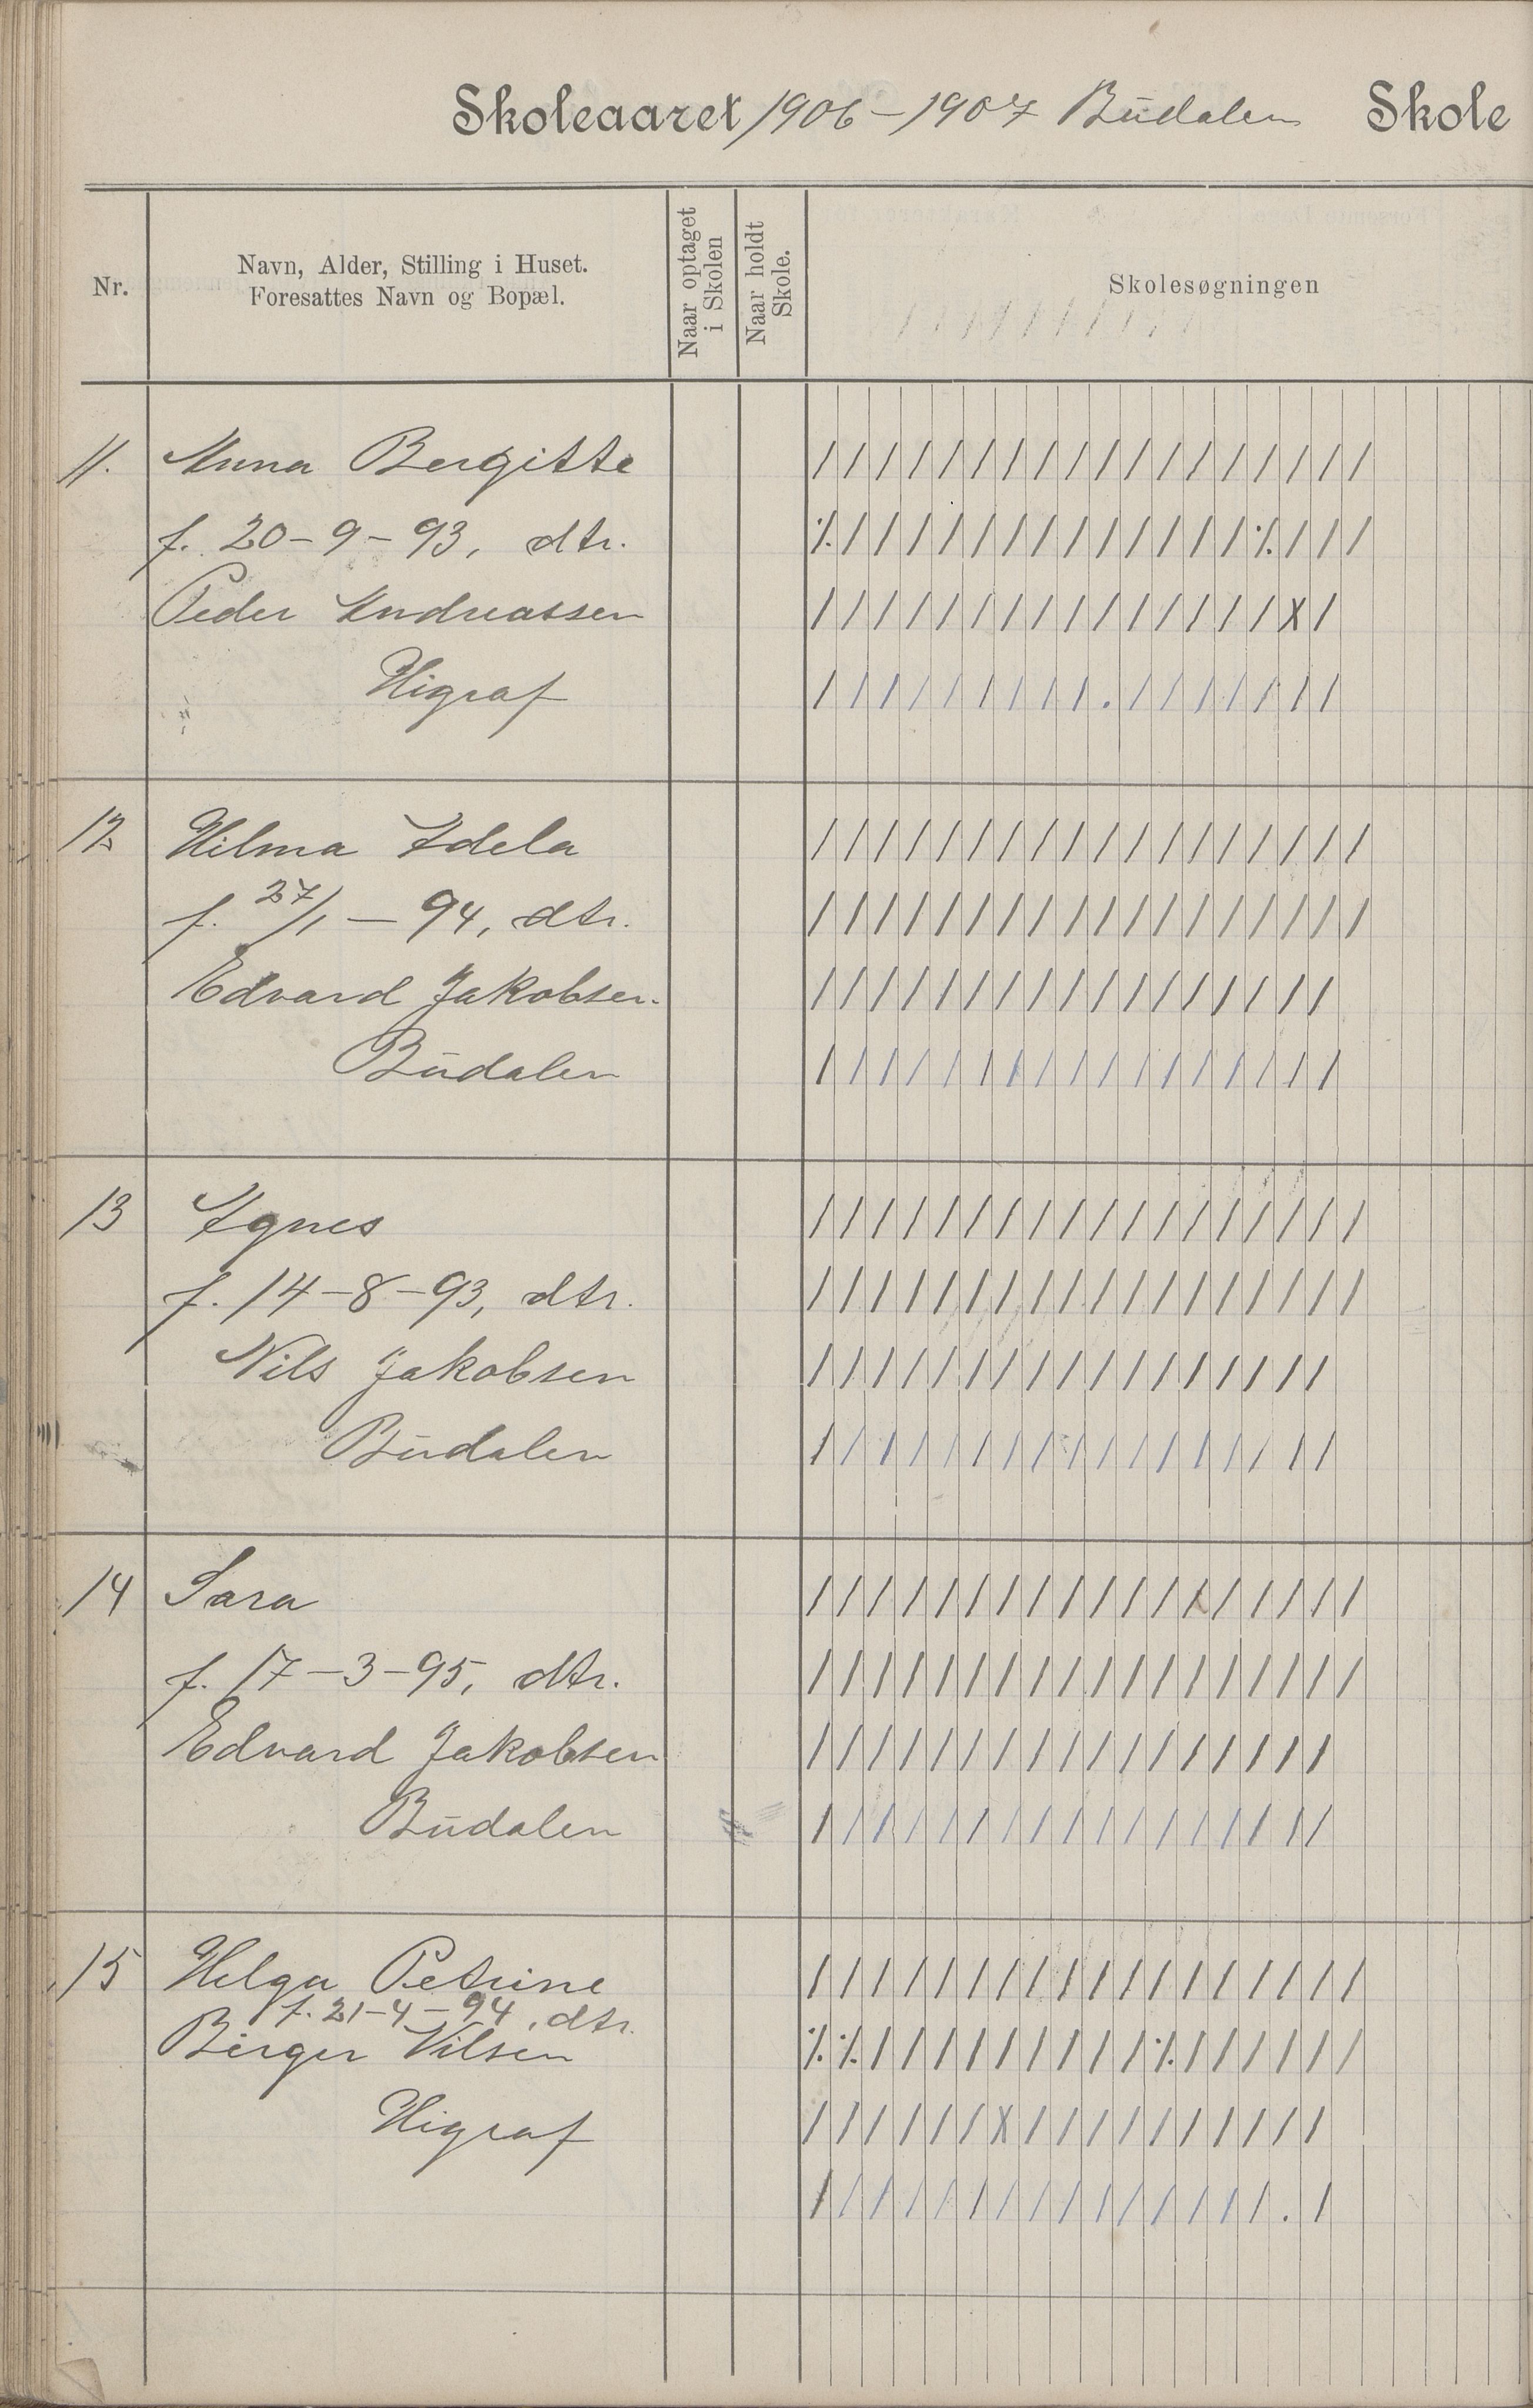 Skoleaaret 1906-1907 Budalen Skole
Nr.
Navn, Alder, Stilling i Huset.
Foresattes Navn og Bopæl.
Naar optaget
i Skolen
Naar holdt
Skole.
Skolesøgningen
11. Anna Bergitte
f. 20-9-93, dtr.
Peder Andreassen
Higraf
12 Hilma Adela
f. 27/1 - 94, dtr.
Edvard Jakobsen.
Budalen
13 Agnes
f. 14-8-93, dtr.
Nils Jakobsen
Budalen
14 Sara
f. 17-3-95, dtr.
Edvard Jakobsen
Budalen
15 Helga Petrine
f. 21-4-94, dtr.
Birger Nilsen
Higraf